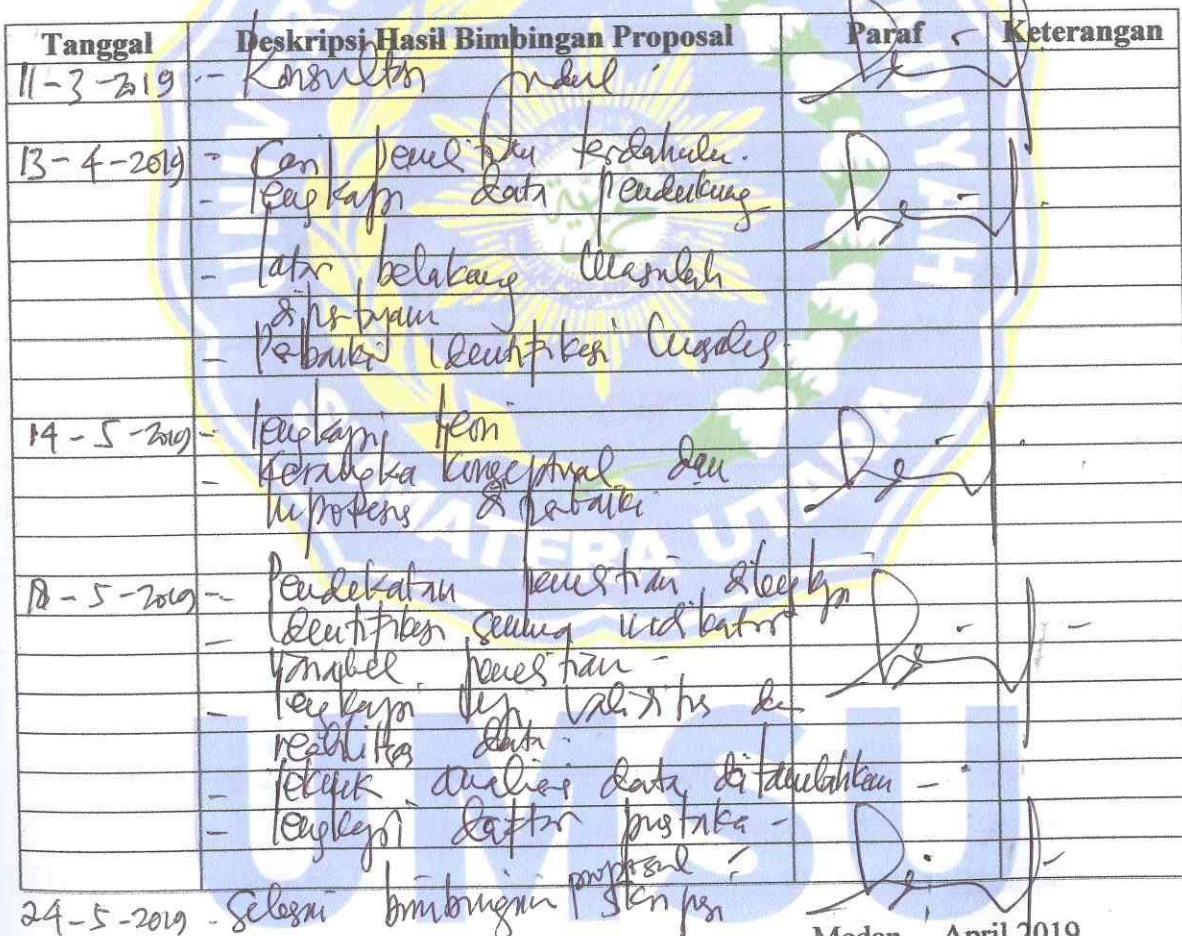 Tanggal Deskripsi Hasil Bimbingan Proposal Paraf Keterangan
11-3-2019 - Konsultasi judul
13-4-2019 - Cari penelitian terdahulu.
- lengkapi data pendukung
- latar belakang masalah
dipertajam
- Perbaiki identifikasi masalah
14-5-2019 - lengkapi teori
- Kerangka konseptual dan
hipotesis diperbaiki
18-5-2019 - Pendekatan penelitian dilengkapi
- identifikasi semua indikator
variabel penelitian
- lengkapi uji validitas dan
reabilitas data
- teknik analisis data ditambahkan -
- lengkapi daftar pustaka -
24-5-2019 - Selesai bimbingan proposal skripsi
Medan, April 2019
SUMATERA UTARA
UMSU